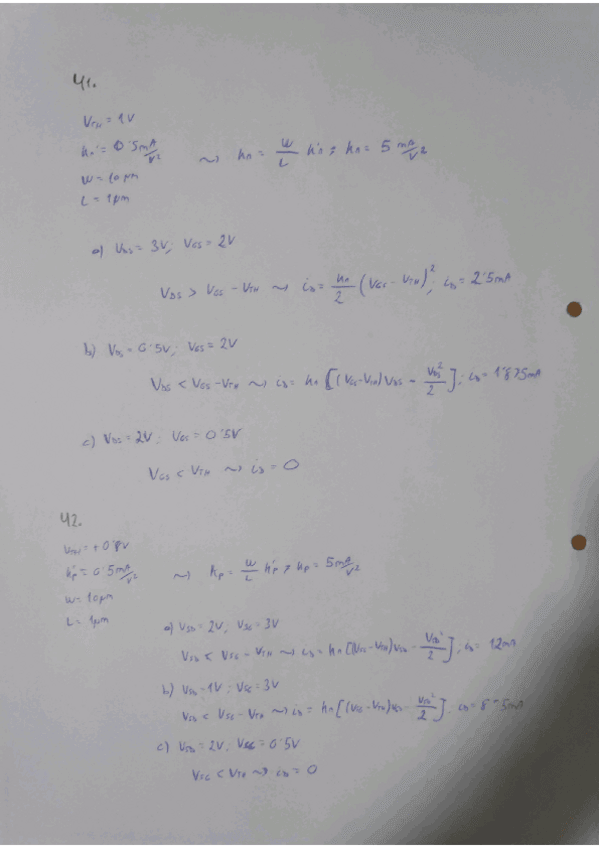 41.
V_TH = 1V
k'n = 0'5 mA/V²
W = 10 μm
L = 1 μm
~> kn = W/L k'n ; kn = 5 mA/V²
a) V_DS = 3V ; V_GS = 2V
V_DS > V_GS - V_TH ~> i_D = kn/2 (V_GS - V_TH)² ; i_D = 2'5mA
b) V_DS = 0'5V ; V_GS = 2V
V_DS < V_GS - V_TH ~> i_D = kn [(V_GS - V_TH) V_DS - V_DS²/2] ; i_D = 1'875mA
c) V_DS = 2V ; V_GS = 0'5V
V_GS < V_TH ~> i_D = 0
42.
k'p = 0'5 mA/V²
W = 10 μm
L = 1 μm
~> kp = W/L k'p ; kp = 5 mA/V²
a) V_SD = 2V ; V_SG = 3V
V_SD < V_SG - V_TH ~> i_D = kn [(V_SG - V_TH) V_SD - V_SD²/2] ; i_D = 12mA
b) V_SD = 1V ; V_SG = 3V
V_SD < V_SG - V_TH ~> i_D = kn [(V_SG - V_TH) V_SD - V_SD²/2] ; i_D = 8'5mA
c) V_SD = 2V ; V_SG = 0'5V
V_SG < V_TH ~> i_D = 0